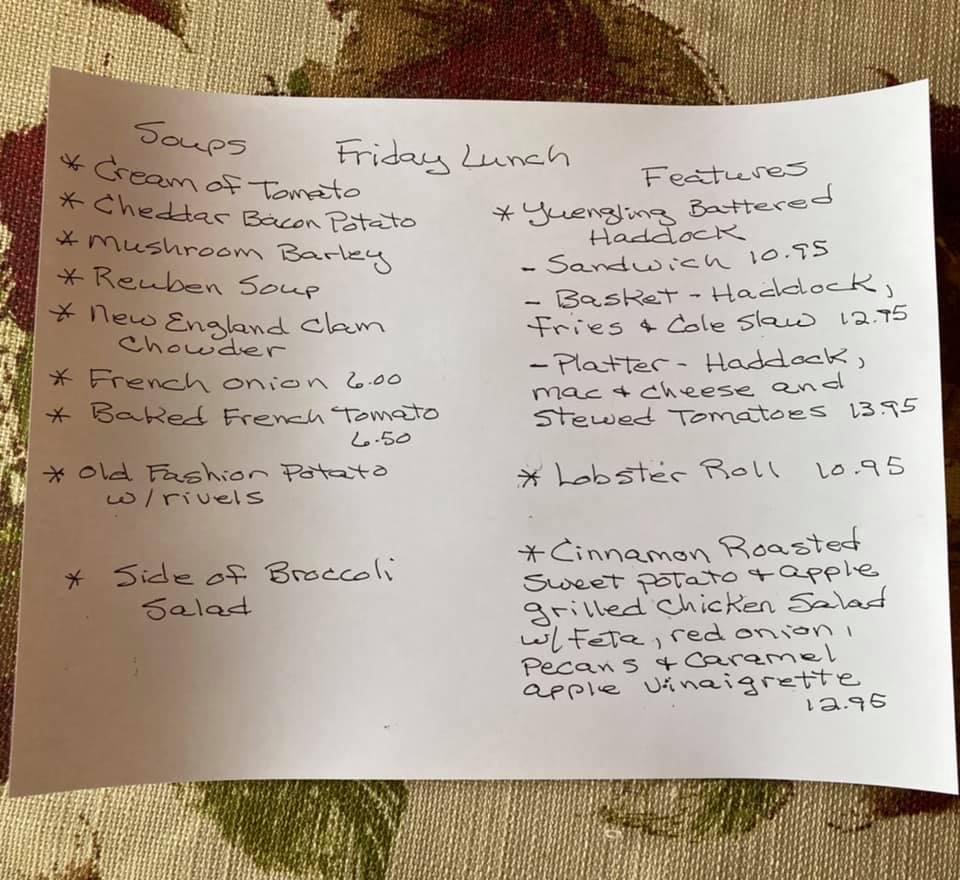 Friday Lunch
Soups
* Cream of Tomato
* Cheddar Bacon Potato
* Mushroom Barley
* Reuben Soup
* New England Clam
Chowder
* French onion 6.00
* Baked French Tomato
6.50
* Old Fashion Potato
w/rivels
* Side of Broccoli
Salad
Features
* Yuengling Battered
Haddock
- Sandwich 10.95
- Basket - Haddock,
Fries & Cole Slaw 12.95
- Platter - Haddock,
mac & cheese and
Stewed Tomatoes 13.95
* Lobster Roll 10.95
* Cinnamon Roasted
Sweet potato & apple
grilled Chicken Salad
w/ Feta, red onion,
Pecans & Caramel
apple Vinaigrette
12.95